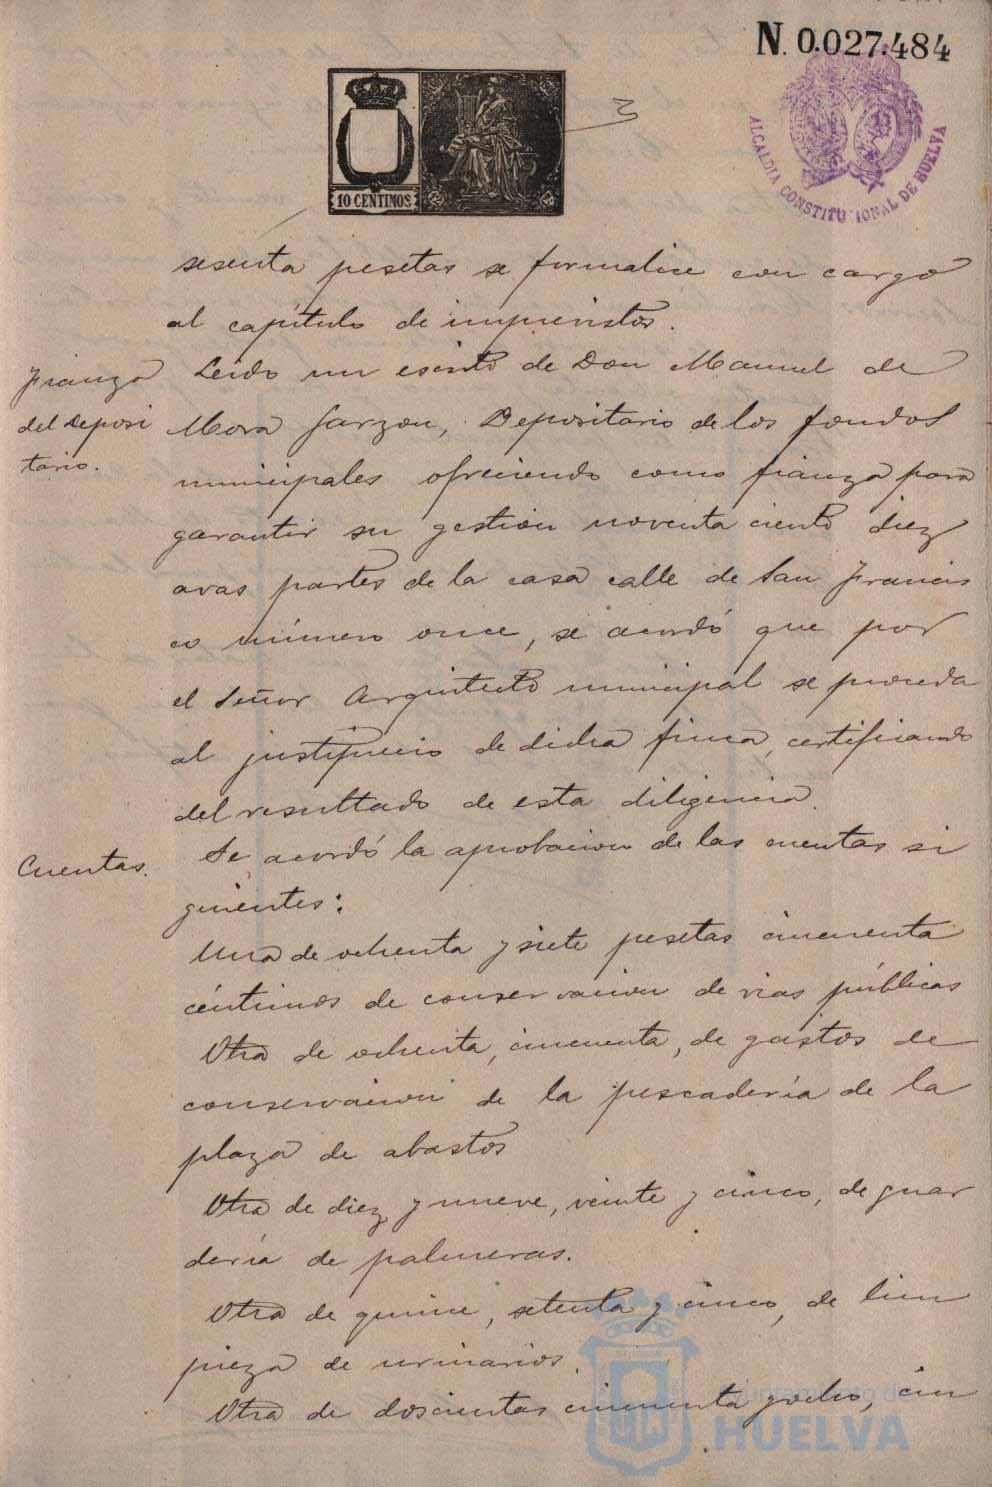 N. 0.027.484
10 CENTIMOS
ALCALDIA CONSTITUCIONAL DE HUELVA
sesenta pesetas se formalice con cargo
al capítulo de imprevistos.
Fianza
del Deposi
tario.
Leido un escrito de Don Manuel de
Mora Garzon, Depositario de los fondos
municipales ofreciendo como fianza para
garantir su gestion noventa ciento diez
avas partes de la casa calle de San Francis
co número once, se acordó que por
el Señor Arquitecto municipal se proceda
al justiprecio de dicha finca, certificando
del resultado de esta diligencia.
Cuentas.
Se acordó la aprobacion de las cuentas si
guientes:
Una de ochenta y siete pesetas cincuenta
céntimos de conservacion de vias públicas
Otra de ochenta, cincuenta, de gastos de
conservacion de la pescadería de la
plaza de abastos
Otra de diez y nueve, veinte y cinco, de guar
dería de palmeras.
Otra de quince, setenta y cinco, de lim
pieza de urinarios.
Otra de doscientas cincuenta y ocho, cin
Ayuntamiento de
HUELVA